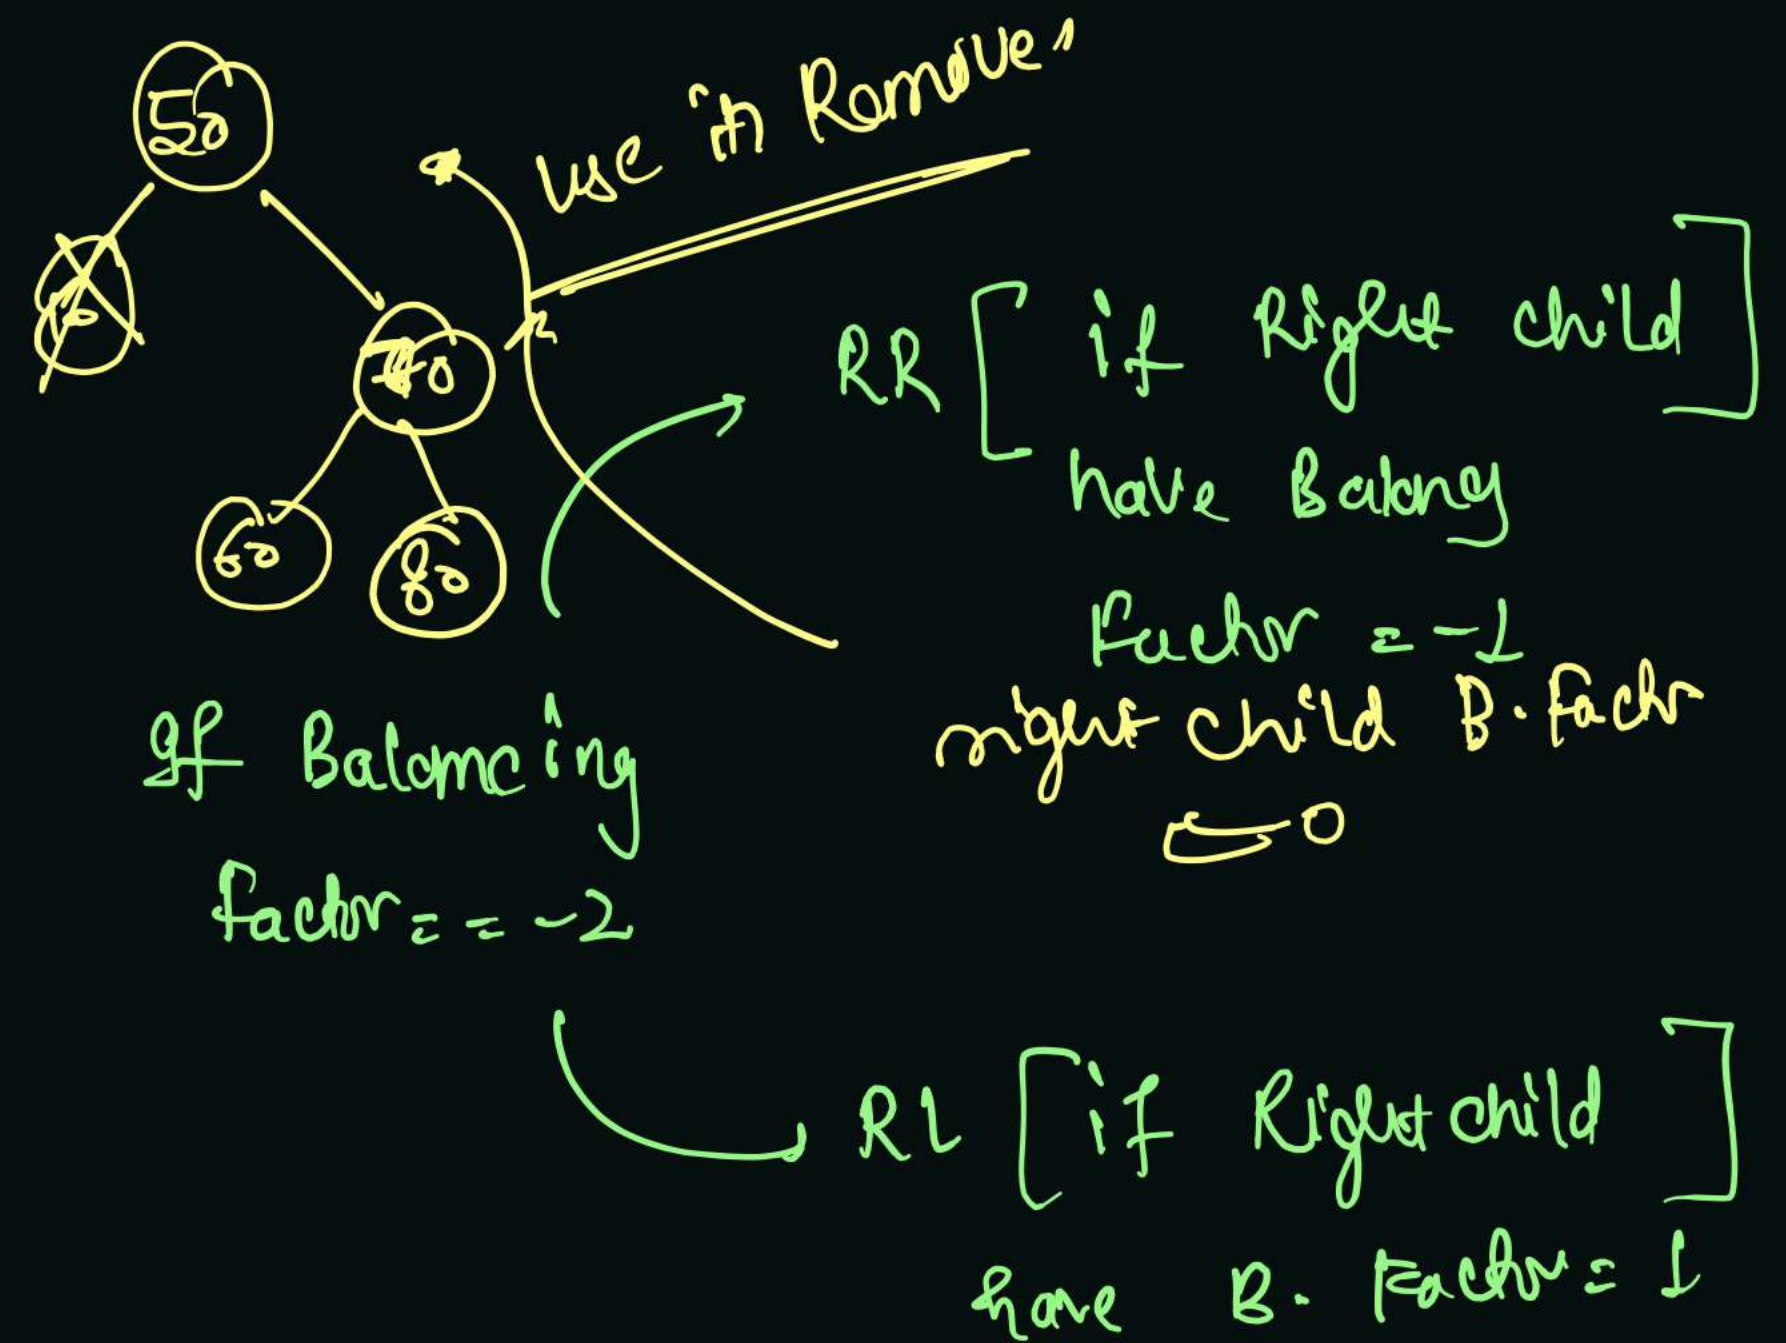 50
use in Remove
10
70
60
80
RR [ if Right child ]
have Balancing
Factor = -1
right child B. Factor
= 0
If Balancing
factor == -2
RL [ if Right child ]
have B. Factor = 1